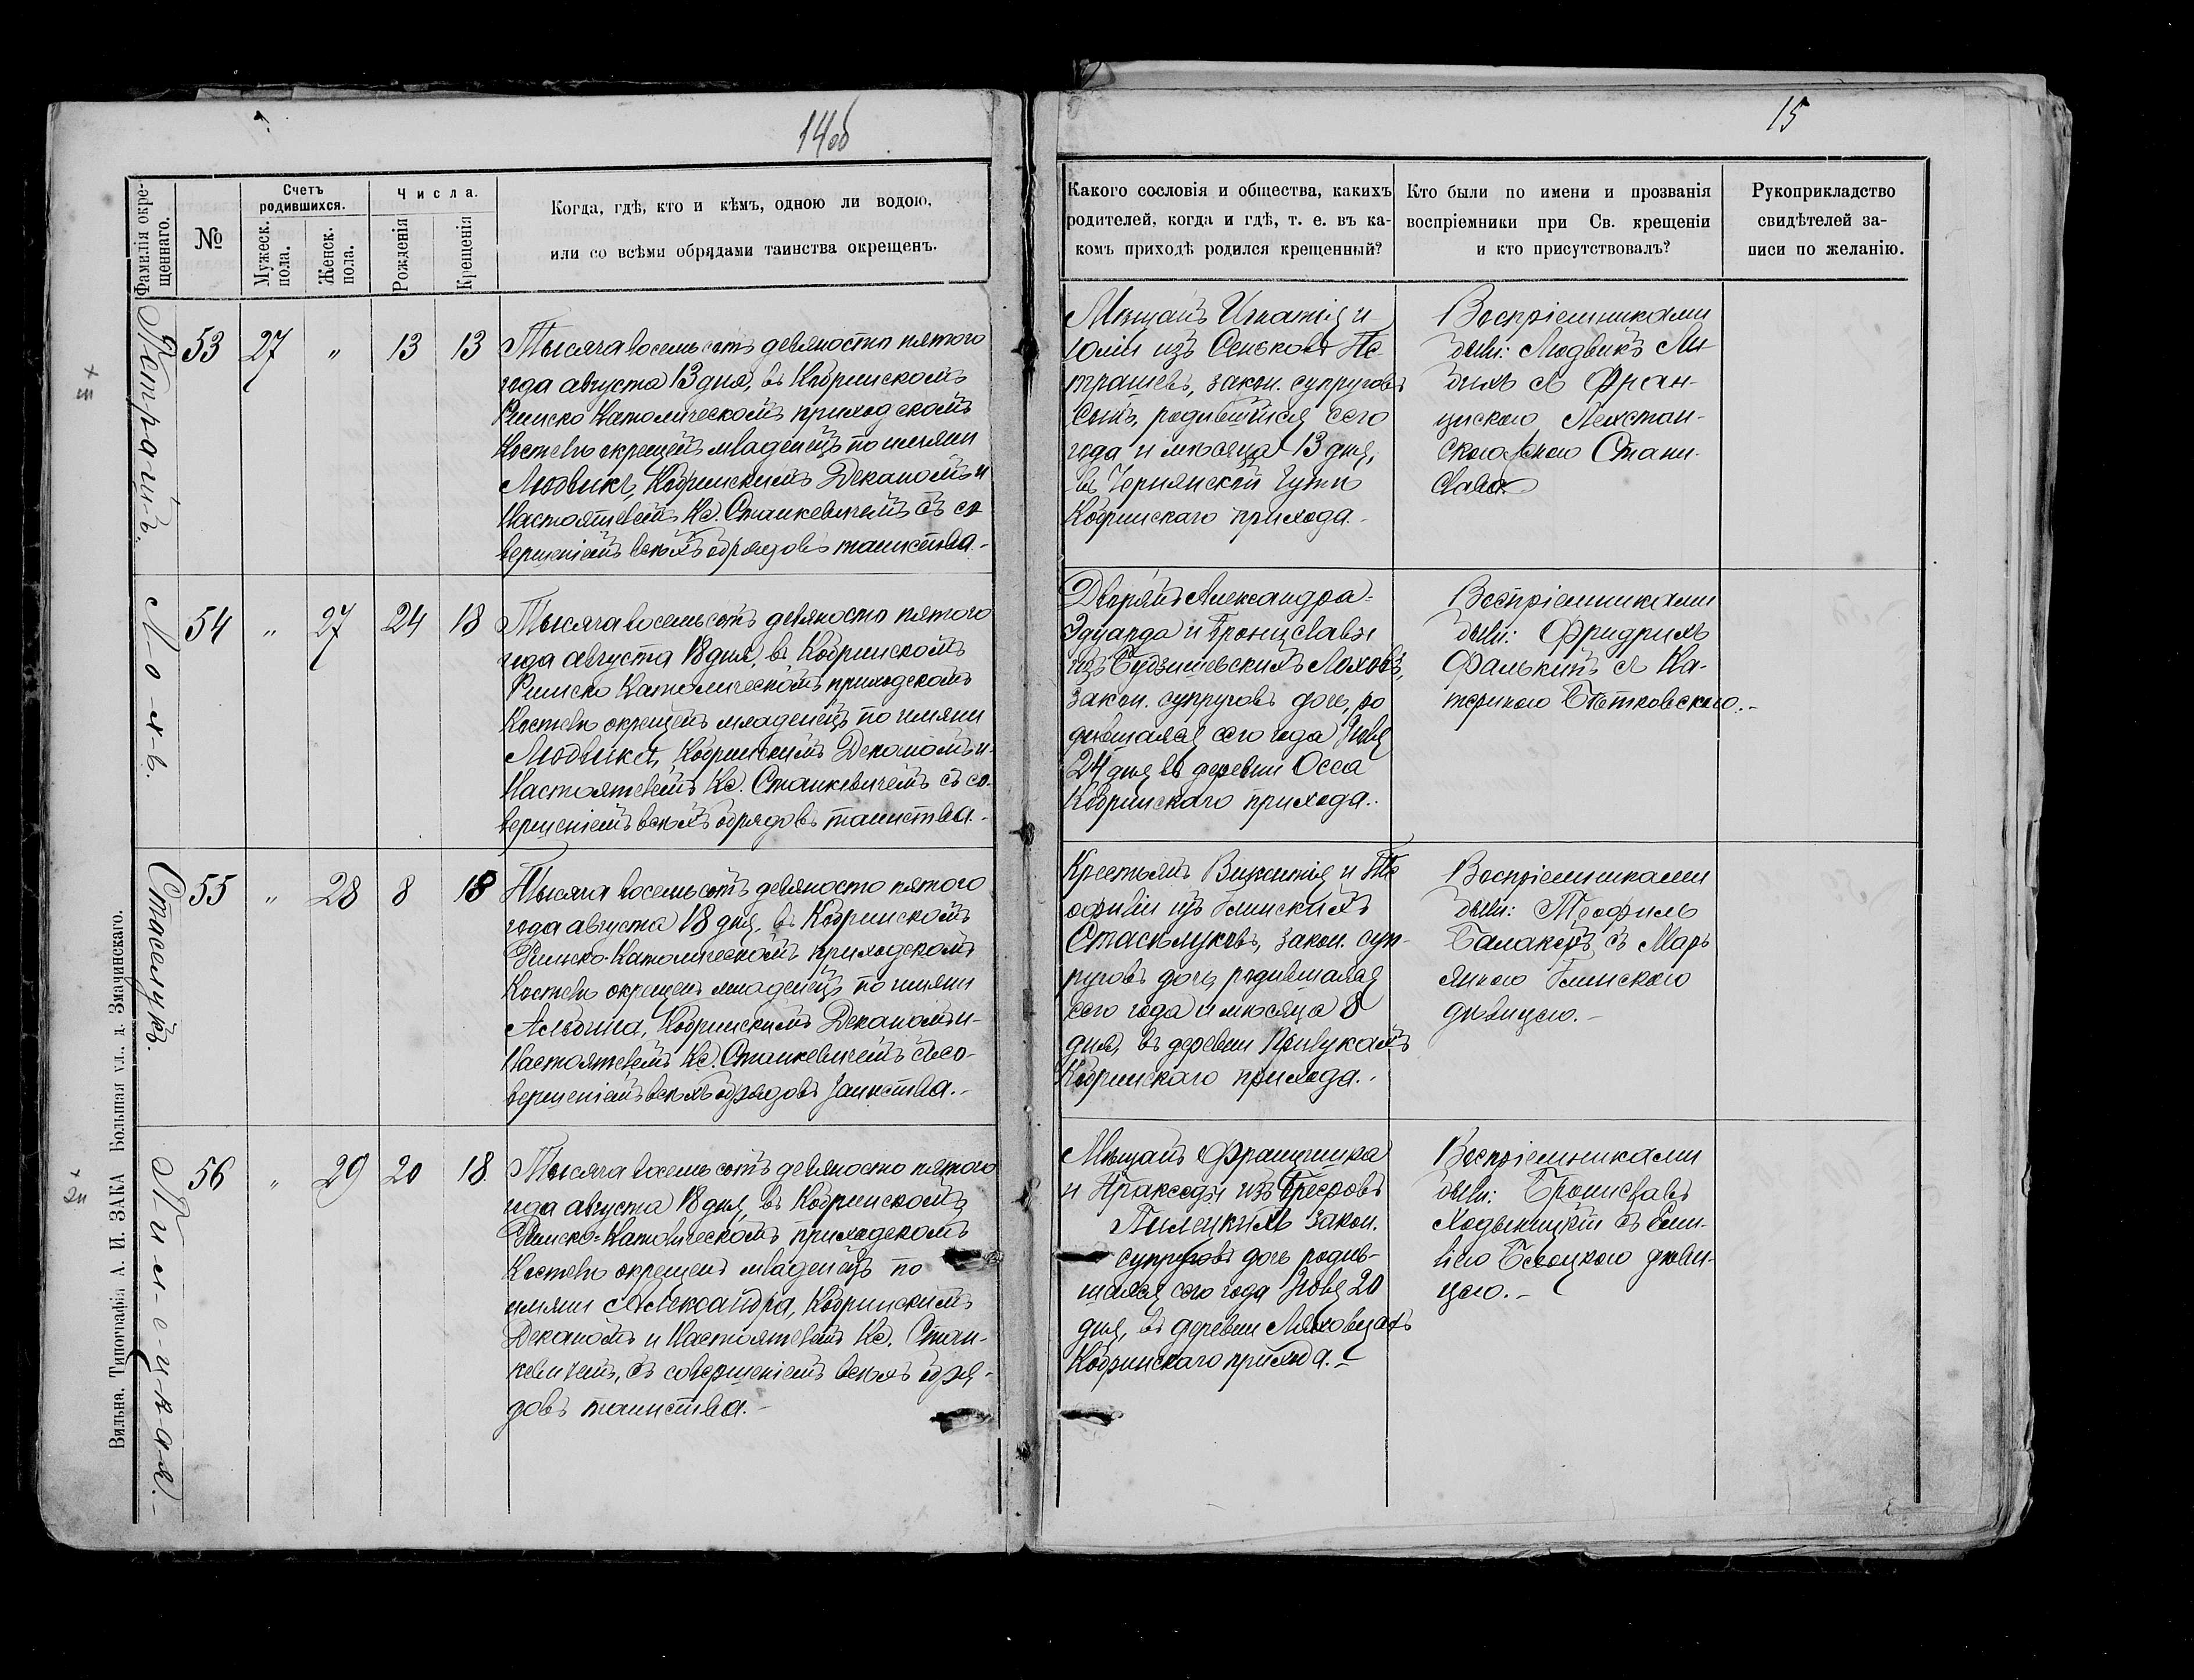 14об
15
Фамилія окре-
щеннаго.
№
Счетъ
родившихся.
Мужеск.
пола.
Женск.
пола.
Числа.
Рожденія
Крещенія
Когда, гдѣ, кто и кѣмъ, одною ли водою,
или со всѣми обрядами таинства окрещенъ.
Какого сословія и общества, какихъ
родителей, когда и гдѣ, т. е. въ ка-
комъ приходѣ родился крещенный?
Кто были по имени и прозванія
воспріемники при Св. крещеніи
и кто присутствовалъ?
Рукоприкладство
свидѣтелей за-
писи по желанію.
53
27
"
13
13
Тысяча восемьсотъ девяносто пятого
года августа 13 дня, въ Кобринскомъ
Римско Католическомъ приходскомъ
Костелѣ окрещенъ младенецъ по имяни
Людвикъ, Кобринскимъ Деканомъ и
Настоятелемъ Кс. Станкевичемъ съ со
вершеніемъ всѣхъ обрядовъ таинства.-
Мѣщанъ Игнатія и
Юліи изъ Сеньковъ Пе
трашевъ, закон. супруговъ
сынъ, родившійся сего
года и мѣсяца 13 дня,
въ Чернянской Гутѣ
Кобринскаго прихода.-
Воспріемниками
были: Людвикъ
съ Фран-
циского
женою Стани-
слава.
Лохъ.
54
"
27
24
18
Тысяча восемьсотъ девяносто пятого
года августа 18 дня, въ Кобринскомъ
Римско Католическомъ приходскомъ
Костелѣ окрещенъ младенецъ по имяни
Людвика, Кобринскимъ Деканомъ и-
Настоятелемъ Кс. Станкевичемъ съ со-
вершеніемъ всѣхъ обрядовъ таинства.-
Дворянъ Александра-
Эдуарда и Брониславы
изъ Будзишевскихъ Лоховъ,
закон. супруговъ дочь, ро
дившаяся сего года Іюля
24 дня въ деревни Осса
Кобринскаго прихода..
Воспріемниками
были: Фридрихъ
Фалькинъ съ Ка-
териною
Стасюлукъ.
55
"
28
8
18
Тысяча восемьсотъ девяносто пятого
года августа 18 дня, въ Кобринскомъ
Римско-Католическомъ приходскомъ
Костелѣ окрещенъ младенецъ по имяни
Альбина, Кобринскимъ Деканомъ и-
Настоятелемъ Кс. Станкевичемъ съ со-
вершеніемъ всѣхъ обрядовъ таинства.-
Крестьянъ Викентія и Те
офиліи изъ Глинскихъ
Стасюлуковъ, закон. суп-
руговъ дочь, родившаяся
сего года и мѣсяца 8
дня, въ деревни Прилукахъ
Кобринскаго прихода.-
Воспріемниками
были: Теофиль
съ Марь
яною Глинскою
дѣвицею.-
Пилецкая.-
56
"
29
20
18.
Тысяча восемьсотъ девяносто пятого
года августа 18 дня, въ Кобринскомъ
Римско-Католическомъ приходскомъ
Костелѣ окрещенъ младенецъ по
имяни Александра, Кобринскимъ
Деканомъ и Настоятелемъ Кс. Стан-
кевичемъ, съ совершеніемъ всѣхъ обря-
довъ таинства.-
Мѣщанъ Францишка
и Пракседы изъ
Пилецкихъ закон.
супруговъ дочь родив-
шаяся сего года Іюля 20
дня, въ деревни Ляховцахъ
Кобринскаго прихода.-
Воспріемниками
были: Брониславъ
Ходыницкій съ Еми-
ліею Бѣлоцкою дѣви-
цею.-
Вильна. Типографія А. И. ЗАКА Большая ул., д. Змачинскаго.